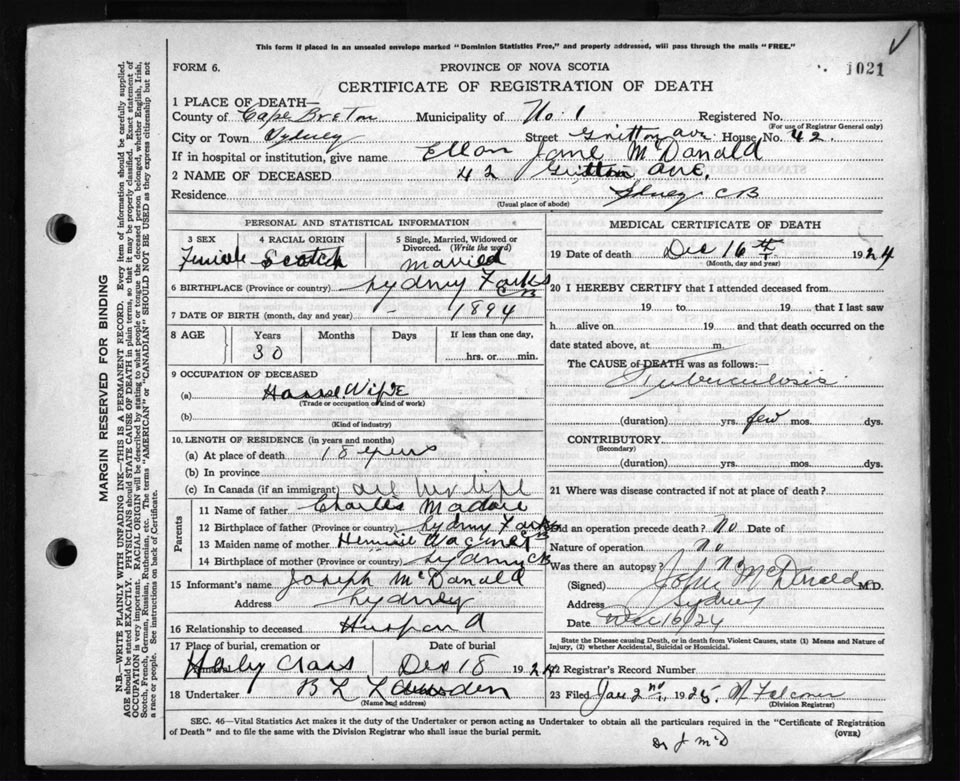 This form if placed in an unsealed envelope marked "Dominion Statistics Free," and properly addressed, will pass through the mails "FREE."
FORM 6.
PROVINCE OF NOVA SCOTIA
1021
CERTIFICATE OF REGISTRATION OF DEATH
1 PLACE OF DEATH—
County of Cape Breton Municipality of No. 1 Registered No.
(For use of Registrar General only)
City or Town Sydney Street Ave House No. 42.
If in hospital or institution, give name
Ellen Jane McDonald
2 NAME OF DECEASED 42 Ave.
Residence Sydney CB
(Usual place of abode)
PERSONAL AND STATISTICAL INFORMATION
3 SEX 4 RACIAL ORIGIN 5 Single, Married, Widowed or Divorced. (Write the word)
Female Scotch Married
6 BIRTHPLACE (Province or country) Sydney Forks CB
7 DATE OF BIRTH (month, day and year) - 1894
8 AGE Years Months Days If less than one day,
30 hrs. or min.
9 OCCUPATION OF DECEASED
(a) House Wife
(Trade or occupation or kind of work)
(b)
(Kind of industry)
10. LENGTH OF RESIDENCE (in years and months)
(a) At place of death 18 years
(b) In province
(c) In Canada (if an immigrant) all her life
Parents
11 Name of father Charles
12 Birthplace of father (Province or country) Sydney Forks CB
13 Maiden name of mother
14 Birthplace of mother (Province or country) Sydney CB
15 Informant's name Joseph McDonald
Address Sydney
16 Relationship to deceased Husband
17 Place of burial, cremation or Date of burial
Holy Cross Dec 18 1924
18 Undertaker B L
(Name and address)
MEDICAL CERTIFICATE OF DEATH
19 Date of death Dec 16th 1924
(Month, day and year)
20 I HEREBY CERTIFY that I attended deceased from
19 to 19 that I last saw
h alive on 19 and that death occurred on the
date stated above, at m.
The CAUSE of DEATH was as follows:
Tuberculosis
(duration) yrs. few mos. dys.
CONTRIBUTORY.
(Secondary)
(duration) yrs. mos. dys.
21 Where was disease contracted if not at place of death?
Did an operation precede death? No Date of
Nature of operation no
Was there an autopsy? no
(Signed) John McDonald M.D.
Address Sydney
Dec 16/24
State the Disease causing Death, or in death from Violent Causes, state (1) Means and Nature of Injury, (2) whether Accidental, Suicidal or Homicidal.
22 Registrar's Record Number
23 Filed Jan 2nd 1925 N Falconer
(Division Registrar)
SEC. 46—Vital Statistics Act makes it the duty of the Undertaker or person acting as Undertaker to obtain all the particulars required in the "Certificate of Registration
of Death" and to file the same with the Division Registrar who shall issue the burial permit.
(OVER)
Dr J McD
MARGIN RESERVED FOR BINDING
N.B.—WRITE PLAINLY WITH UNFADING INK—THIS IS A PERMANENT RECORD. Every item of information should be carefully supplied.
AGE should be stated EXACTLY. PHYSICIANS should STATE CAUSE OF DEATH in plain terms, so that it may be properly classified. Exact statement of
OCCUPATION is very important. RACIAL ORIGIN will be described by stating to what people or tongue the deceased person belonged, whether English, Irish,
Scotch, French, German, Russian, Ruthenian, etc. The terms "AMERICAN" or "CANADIAN" SHOULD NOT BE USED as they express citizenship but not
a race or people. See instructions on back of Certificate.